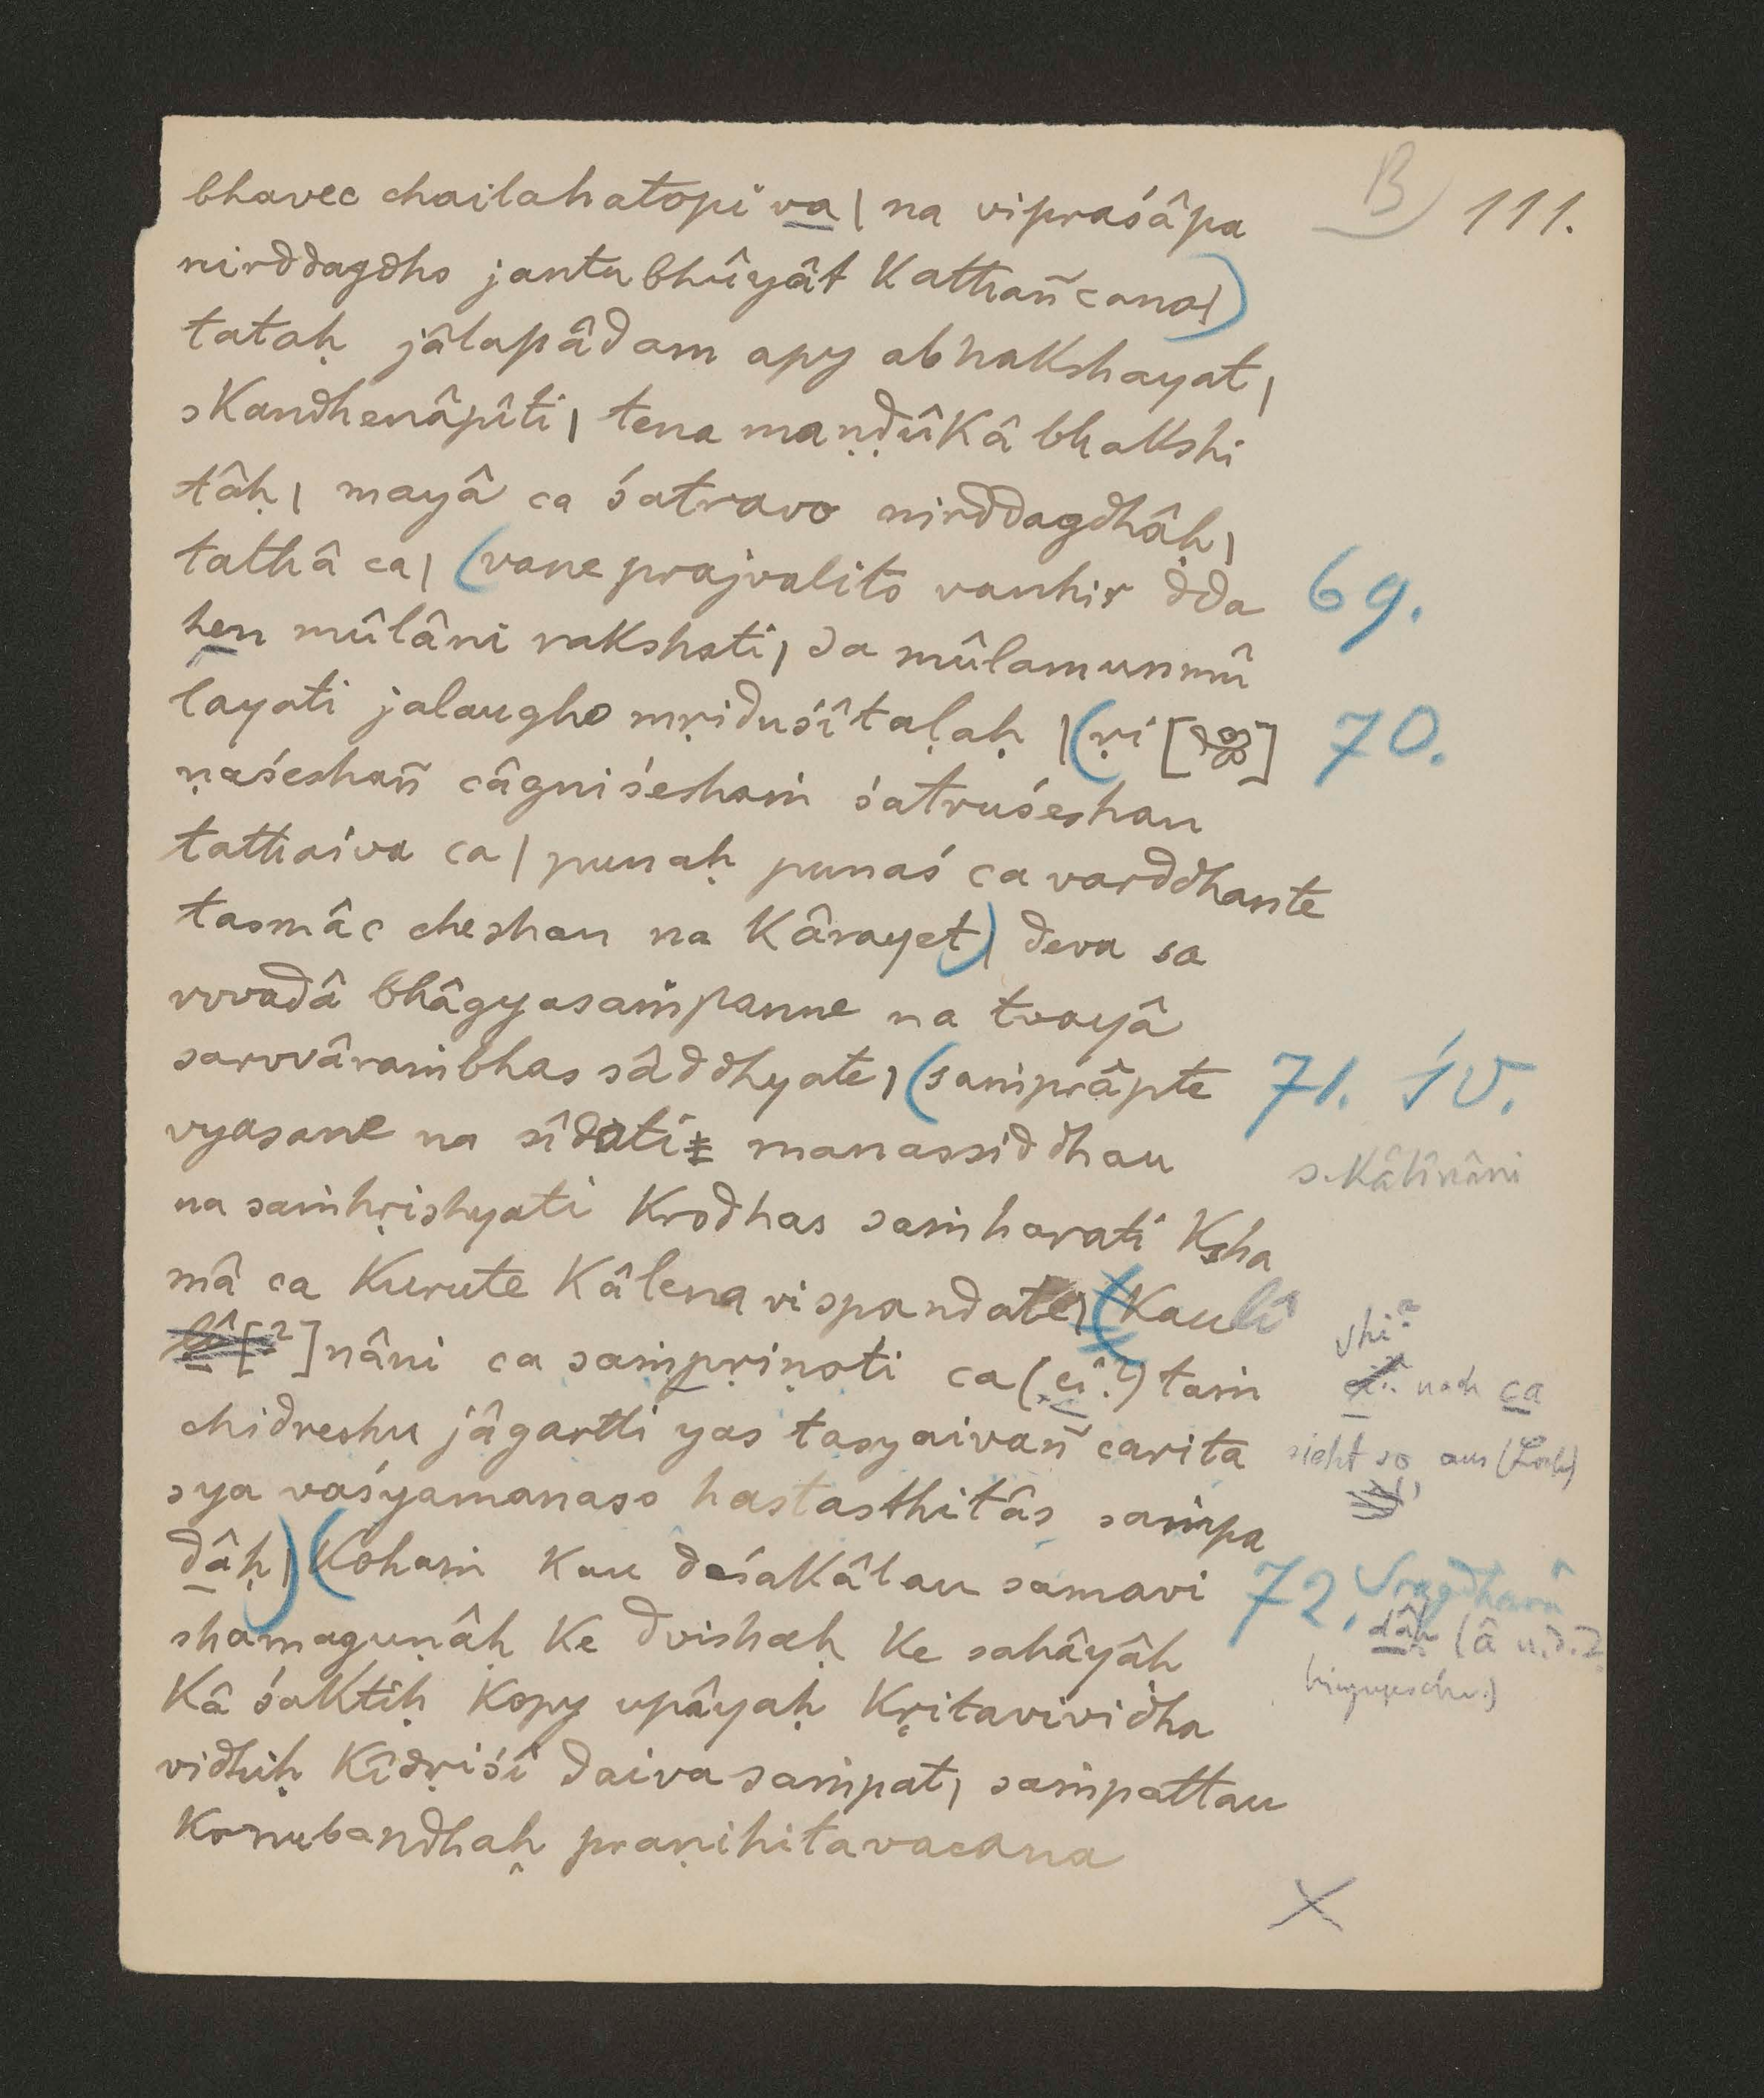 B 111.
bhavec chailahatopi va | na vipraśâpa
nirddagdho jantubhûyât kathañcana|)
tataḥ jâlapâdam apy abhakshayat,
skandhenâpîti, tena maṇḍûkâ bhakshi
tâḥ, mayâ ca śatravo nirddagdhâḥ,
tathâ ca, (vane prajvalito vanhir dda 69.
hen mûlâni rakshati, sa mûlamunmû
layati jalaugho mṛiduśîtaḷaḥ | (ṛi [ ] 70.
ṇaśeshañ câgniśeshaṁ śatruśeshan
tathaiva ca | punaḥ punaś ca varddhante
tasmâc cheshan na kârayet) | deva sa
rvvadâ bhâgyasaṁpanne na tvayâ
sarvvâraṁbhas sâddhyate, (saṁprâpte 71. śv.
vyasane na sîdati manassiddhau s. Kâlînâni
na saṁhṛishyati krodhas saṁharati ksha
mâ ca kurute kâlena vispandate, (kaulî
[?]nâni ca saṁpṛiṇoti ca (ci?) taṁ nach ca
chidreshu jâgartti yas tasyaivañ carita sieht so aus (Loch)
sya vaśyamanaso hastasthitâs saṁpa
dâḥ) | (kohaṁ kau deśakâlau samavi 72. Sragdharâ
shamaguṇâḥ ke dvishaḥ ke sahâyâḥ dâḥ (â u.d.Z.
kâ śaktiḥ kopy upâyaḥ kṛitavividha hinzugeschr.)
vidhiḥ kîdṛiśî daivasaṁpat, saṁpattau
konubandhaḥ praṇihitavacana